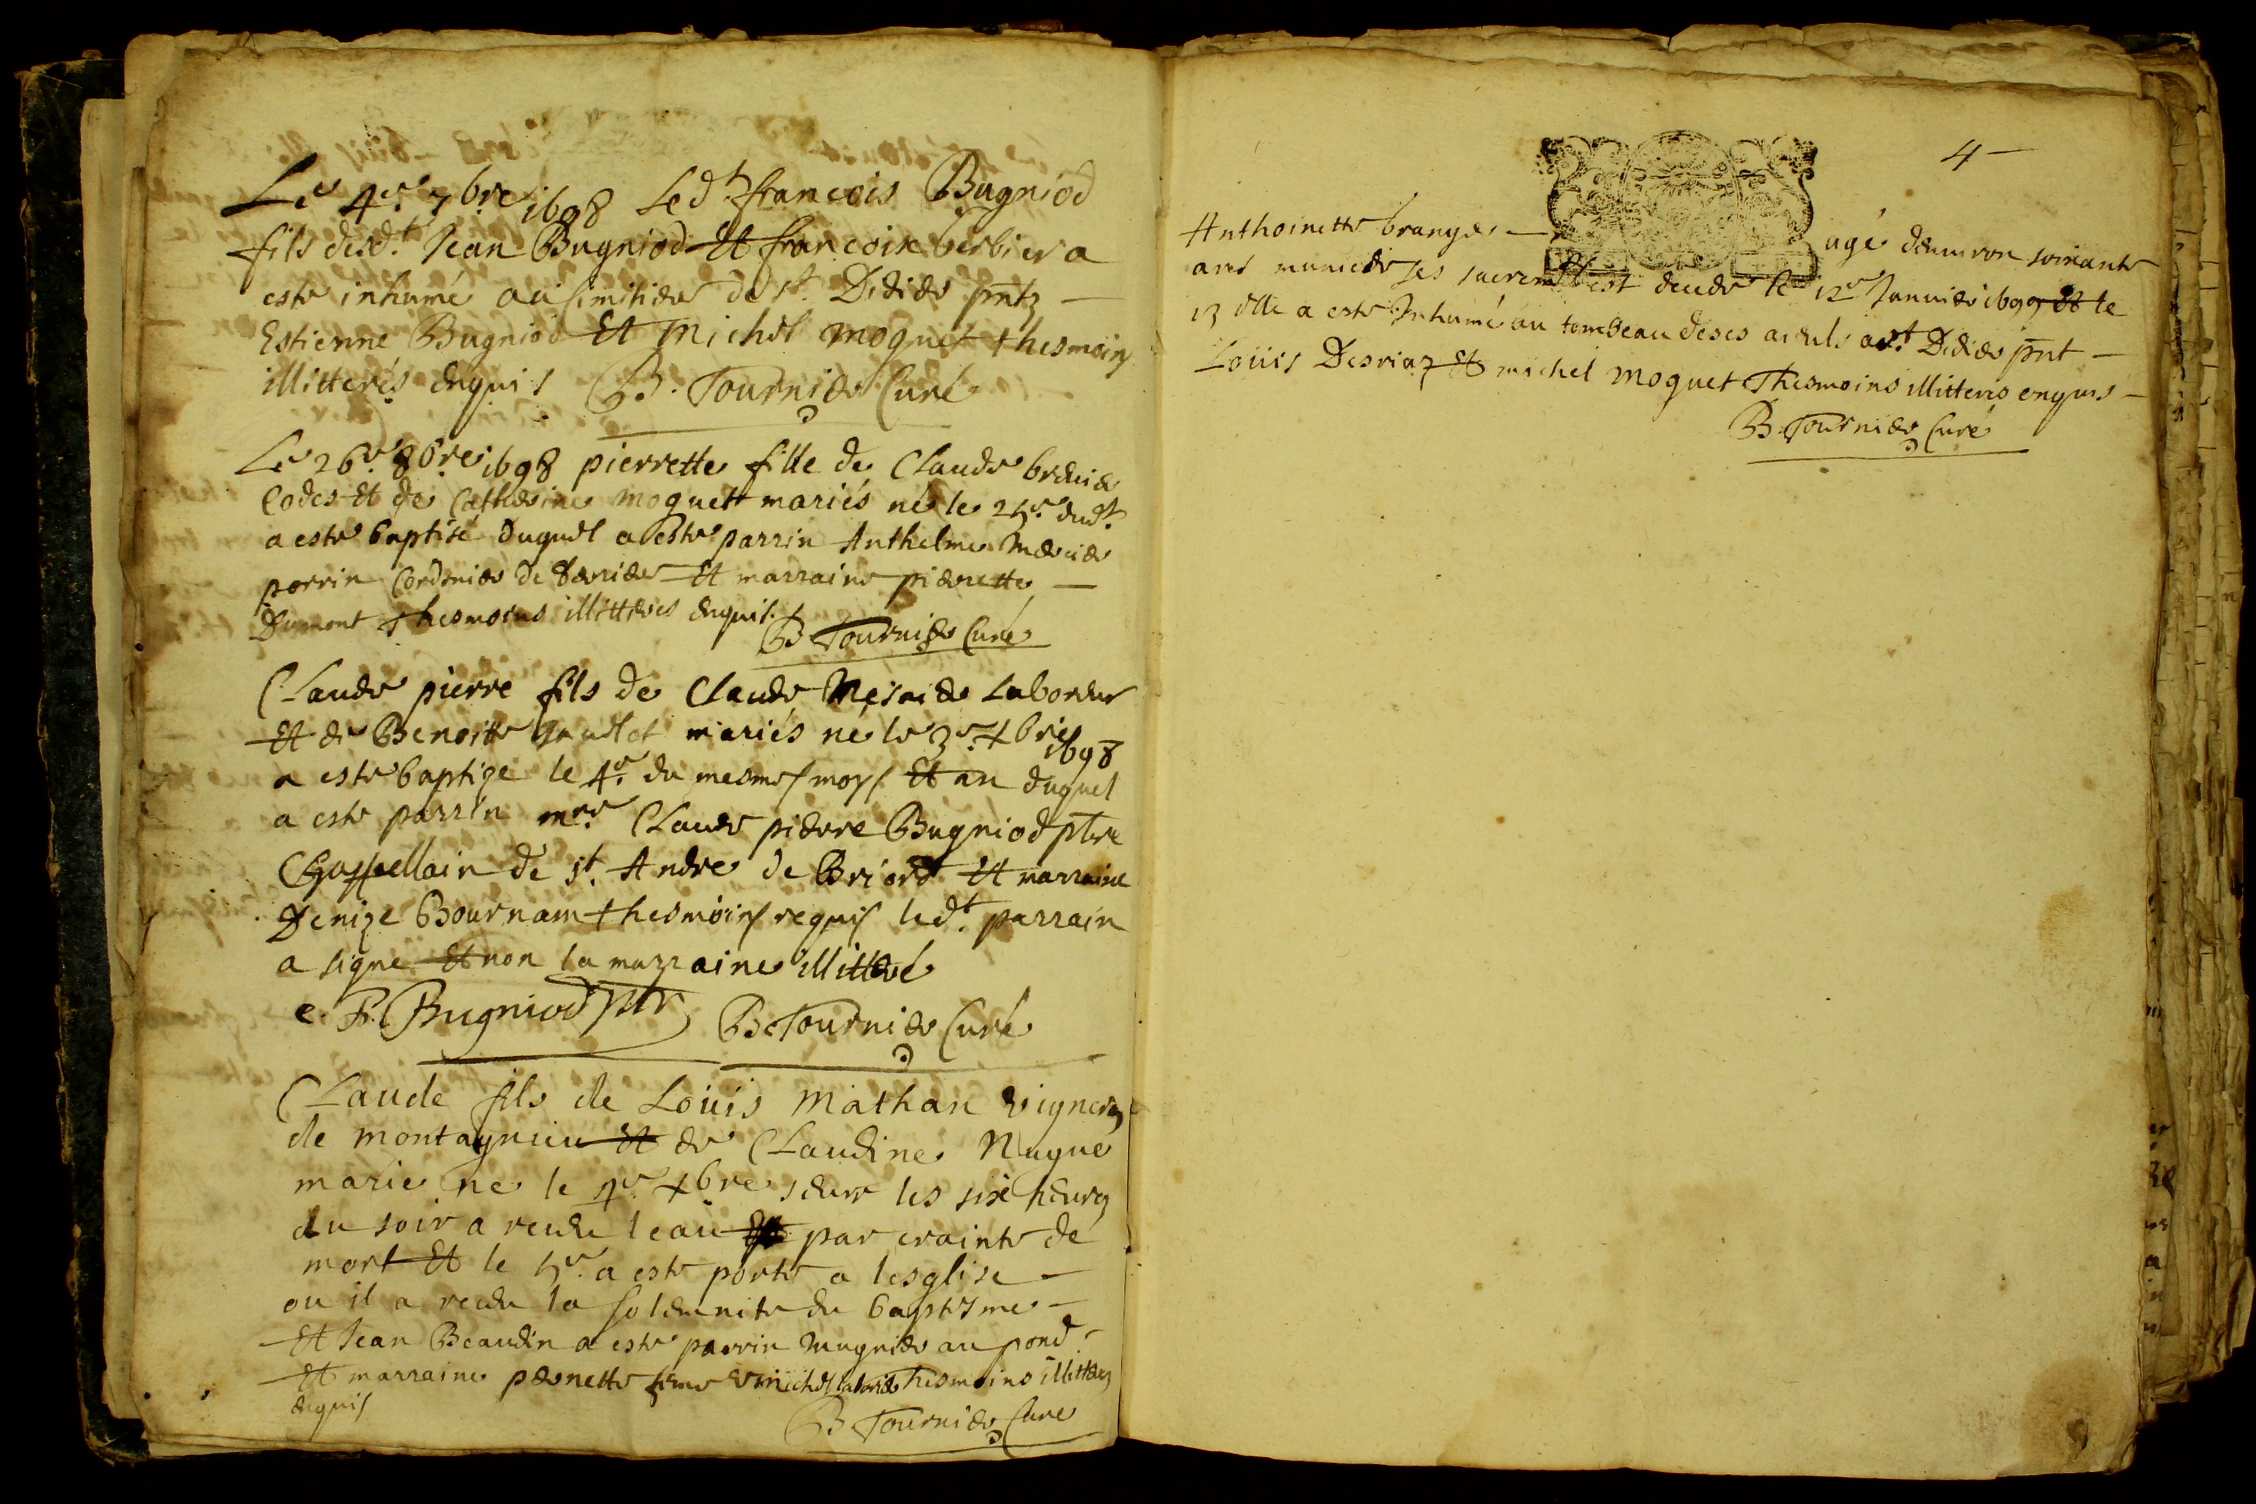 Le 4e. 7bre 1698 Ledt. francois Bugniod
fils desdt. Jean Bugniod Et francoise berbier a
este inhumé au simitier de st. Didier pntz
Estienne Bugniod Et Michel moquet thesmoins
illitterés enquis B. Tournier Curé
Le 26e. 8bre 1698 pierrette fille de Claude
Et de Catherine moquet mariés né le 25e. dudt.
a este baptisé duquel a este parrin Anthelme Mercier
perrin Cordonier de Et marraine pierrette
Dumont thesmoins illitteres enquis.
B Tournier Curé
Claude pierre fils de Claude Mercier Laboreur
Et de Benoitte mariés né le 3e. xbre
1698
a este baptize le 4e. du mesme moys Et an duquel
a este parrin mre. Claude pierre Bugniod ptre
Chappellain de st. Andre de Briord Et marraine
Denize Bournam thesmoins requis ledt. parrain
a signe Et non la marraine illitteré
C. P. Bugniod ptr B Tournier Curé
Claude fils de Loüis Mathan vigneron
de montagnieu Et de Claudine Nugué
marie ne le 4e. xbre seur les six heures
du soir a receu leau par crainte de
mort Et le 5e. a este porte a lesglise
ou il a receu la solemnite du baptesme
Et Jean Beaudin a este parrin mugnier au pond
Et marraine pernette feme michel thesmoins illitteres
enquis
B Tournier Curé
4
Anthoinette branger agé denviron soixante
ans munie de ses sacremts est decede le 12e Janvier 1699 Et le
13 elle a este Inhumé au tombeau de ses aieuls a st Didier pnt
Loüis Desriaz Et michel moquet Thesmoins illitteres enquis
B. Tournier Curé